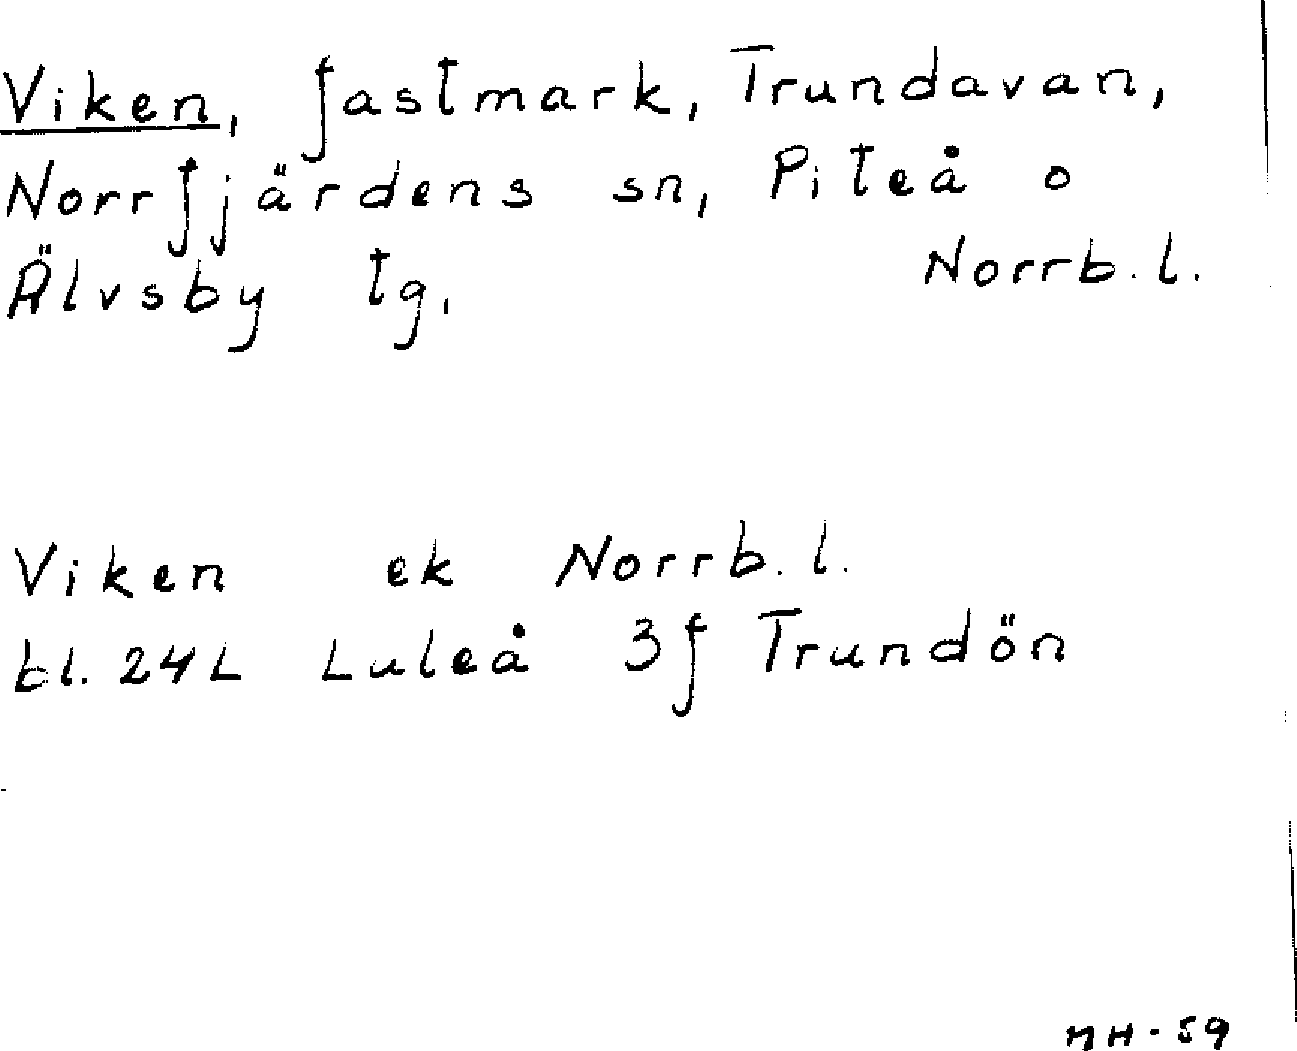 Viken, fastmark, Trundavan,
Norrfjärdens sn, Piteå o
Älvsby tg. Norrb.l.
Viken ek Norrb.l.
bl. 24L Luleå 3f Trundön
MH-59